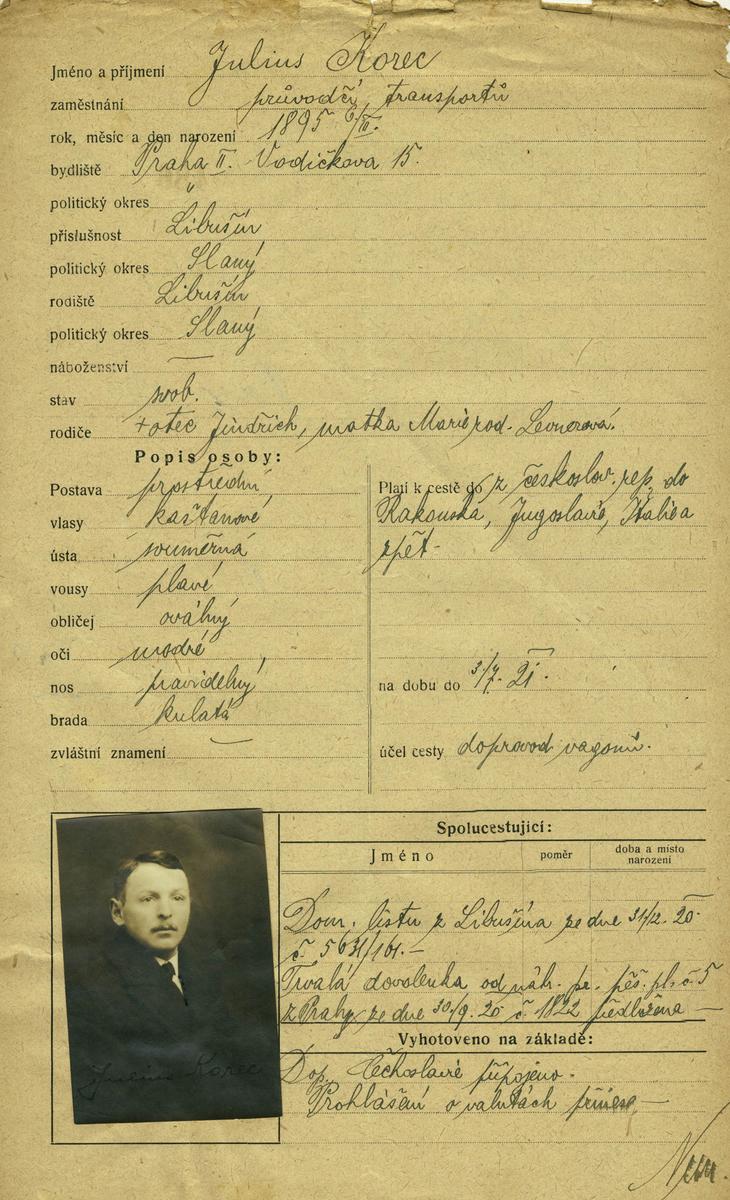 Jméno a příjmení Julius Korec
zaměstnání průvodčí transportů
rok, měsíc a den narození 1895 6/III.
bydliště Praha II. Vodičkova 15.
politický okres "
příslušnost Libušín
politický okres Slaný
rodiště Libušín
politický okres Slaný
náboženství —
stav svob.
rodiče + otec Jindřich, matka Marie rod.
Popis osoby:
Postava prostřední
vlasy kaštanové
ústa souměrná
vousy plavé
obličej oválný
oči modré
nos pravidelný
brada kulatá
zvláštní znamení —
Platí k cestě do z českoslov. rep. do
Rakouska, Jugoslavie, Italie a
zpět-
na dobu do 21.
účel cesty doprovod vagonů.
Spolucestující:
Jméno poměr doba a místo narození
Dom. listu z Libušína ze dne 31/12. 20
č. 5631/101.-
Trvalá dovolenka od náh. pr. pěš. pl. č. 5
z Prahy ze dne 30/9. 20 č. 1822 předložena —
Vyhotoveno na základě:
Dop. Čechoslavie připojeno.
Prohlášení o valutách přinese —
Julius Korec